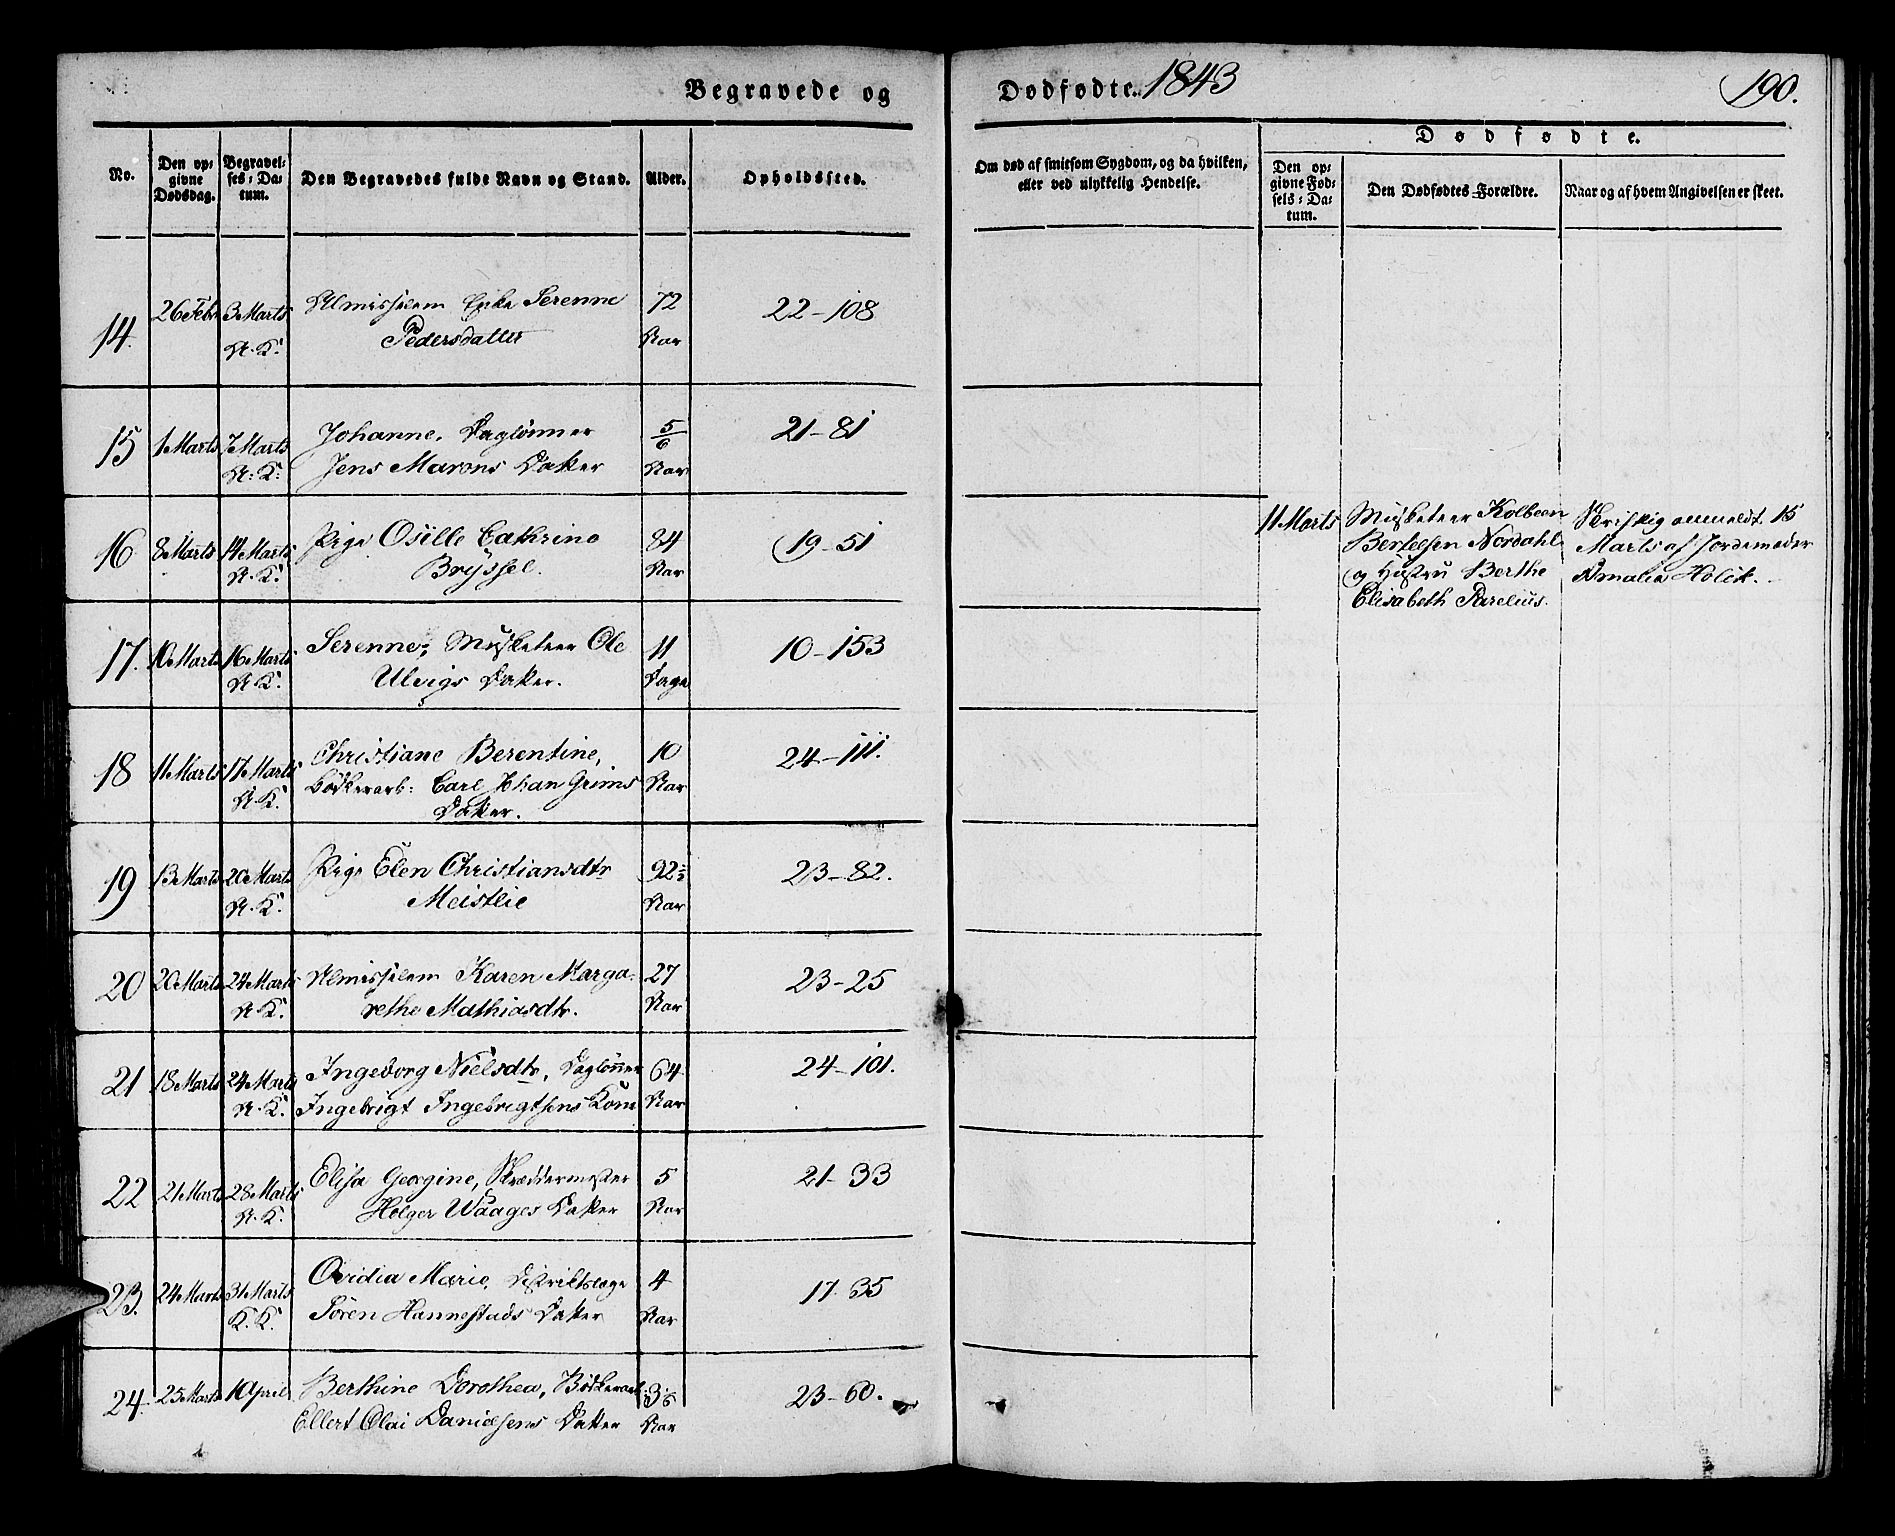 Begravede og Dødfødte. 1843 190.
No.
Den opgivne Dødsdag.
Begravelses-Datum.
Den Begravedes fulde Navn og Stand.
Alder.
Opholdssted.
Om død af smitsom Sygdom, og da hvilken, eller ved ulykkelig Hendelse.
Dødfødte.
Den opgivne Fødsels-Datum.
Den Dødfødtes Forældre.
Naar og af hvem Angivelsen er skeet.
14. 26 Febr 3 Marts Almisselem Enke Serenne 72 22-108
A. K. Pedersdatter Aar
15 1 Marts 7 Marts Johanne, Daglønner 5/6 21-81
A. K. Jens Marons Datter Aar
16 8 Marts 14 Marts Pige Osille Cathrine 84 19-51
A. K. Bryssel. Aar
11 Marts Musketeer Kolbeen Skriftlig anmeldt 15
Bertelsen Nordahl Marts af Jordemoder
og Hustru Berthe Amalia Holck.
Elisabeth Parelius.
17. 10 Marts 16 Marts Serenne, Musketeer Ole 11 10-153
A. K. Ulvigs Datter. Dage
18 11 Marts 17 Marts Christiane Berentine, 10 24-111.
A. K. Bødkerarb: Carl Johan Grims Aar
Datter.
19 13 Marts 20 Marts Pige Elen Christiansdtr 92 23-82.
A. K. Meistlie Aar
20 20 Marts 24 Marts Almisselem Karen Marga- 27 23-25
A. K. rethe Mathiasdtr. Aar
21 18 Marts 24 Marts Ingeborg Nielsdtr, Daglønner 64 24-101.
A. K. Ingebrigt Ingebrigtsens Kone Aar
22 21 Marts 28 Marts Elisa Georgine, Skræddermester 5 21-33
A. K. Holger Waages Datter Aar
23. 24 Marts 31 Marts Ovidia Marie, Distriktslæge 4 17-35
K. K. Sören Hannestads Datter Aar
24. 25 Marts 1 April Berthine Dorothea, Bødkerarb: 23-60.
Ellert Olai Danielsens Datter Aar